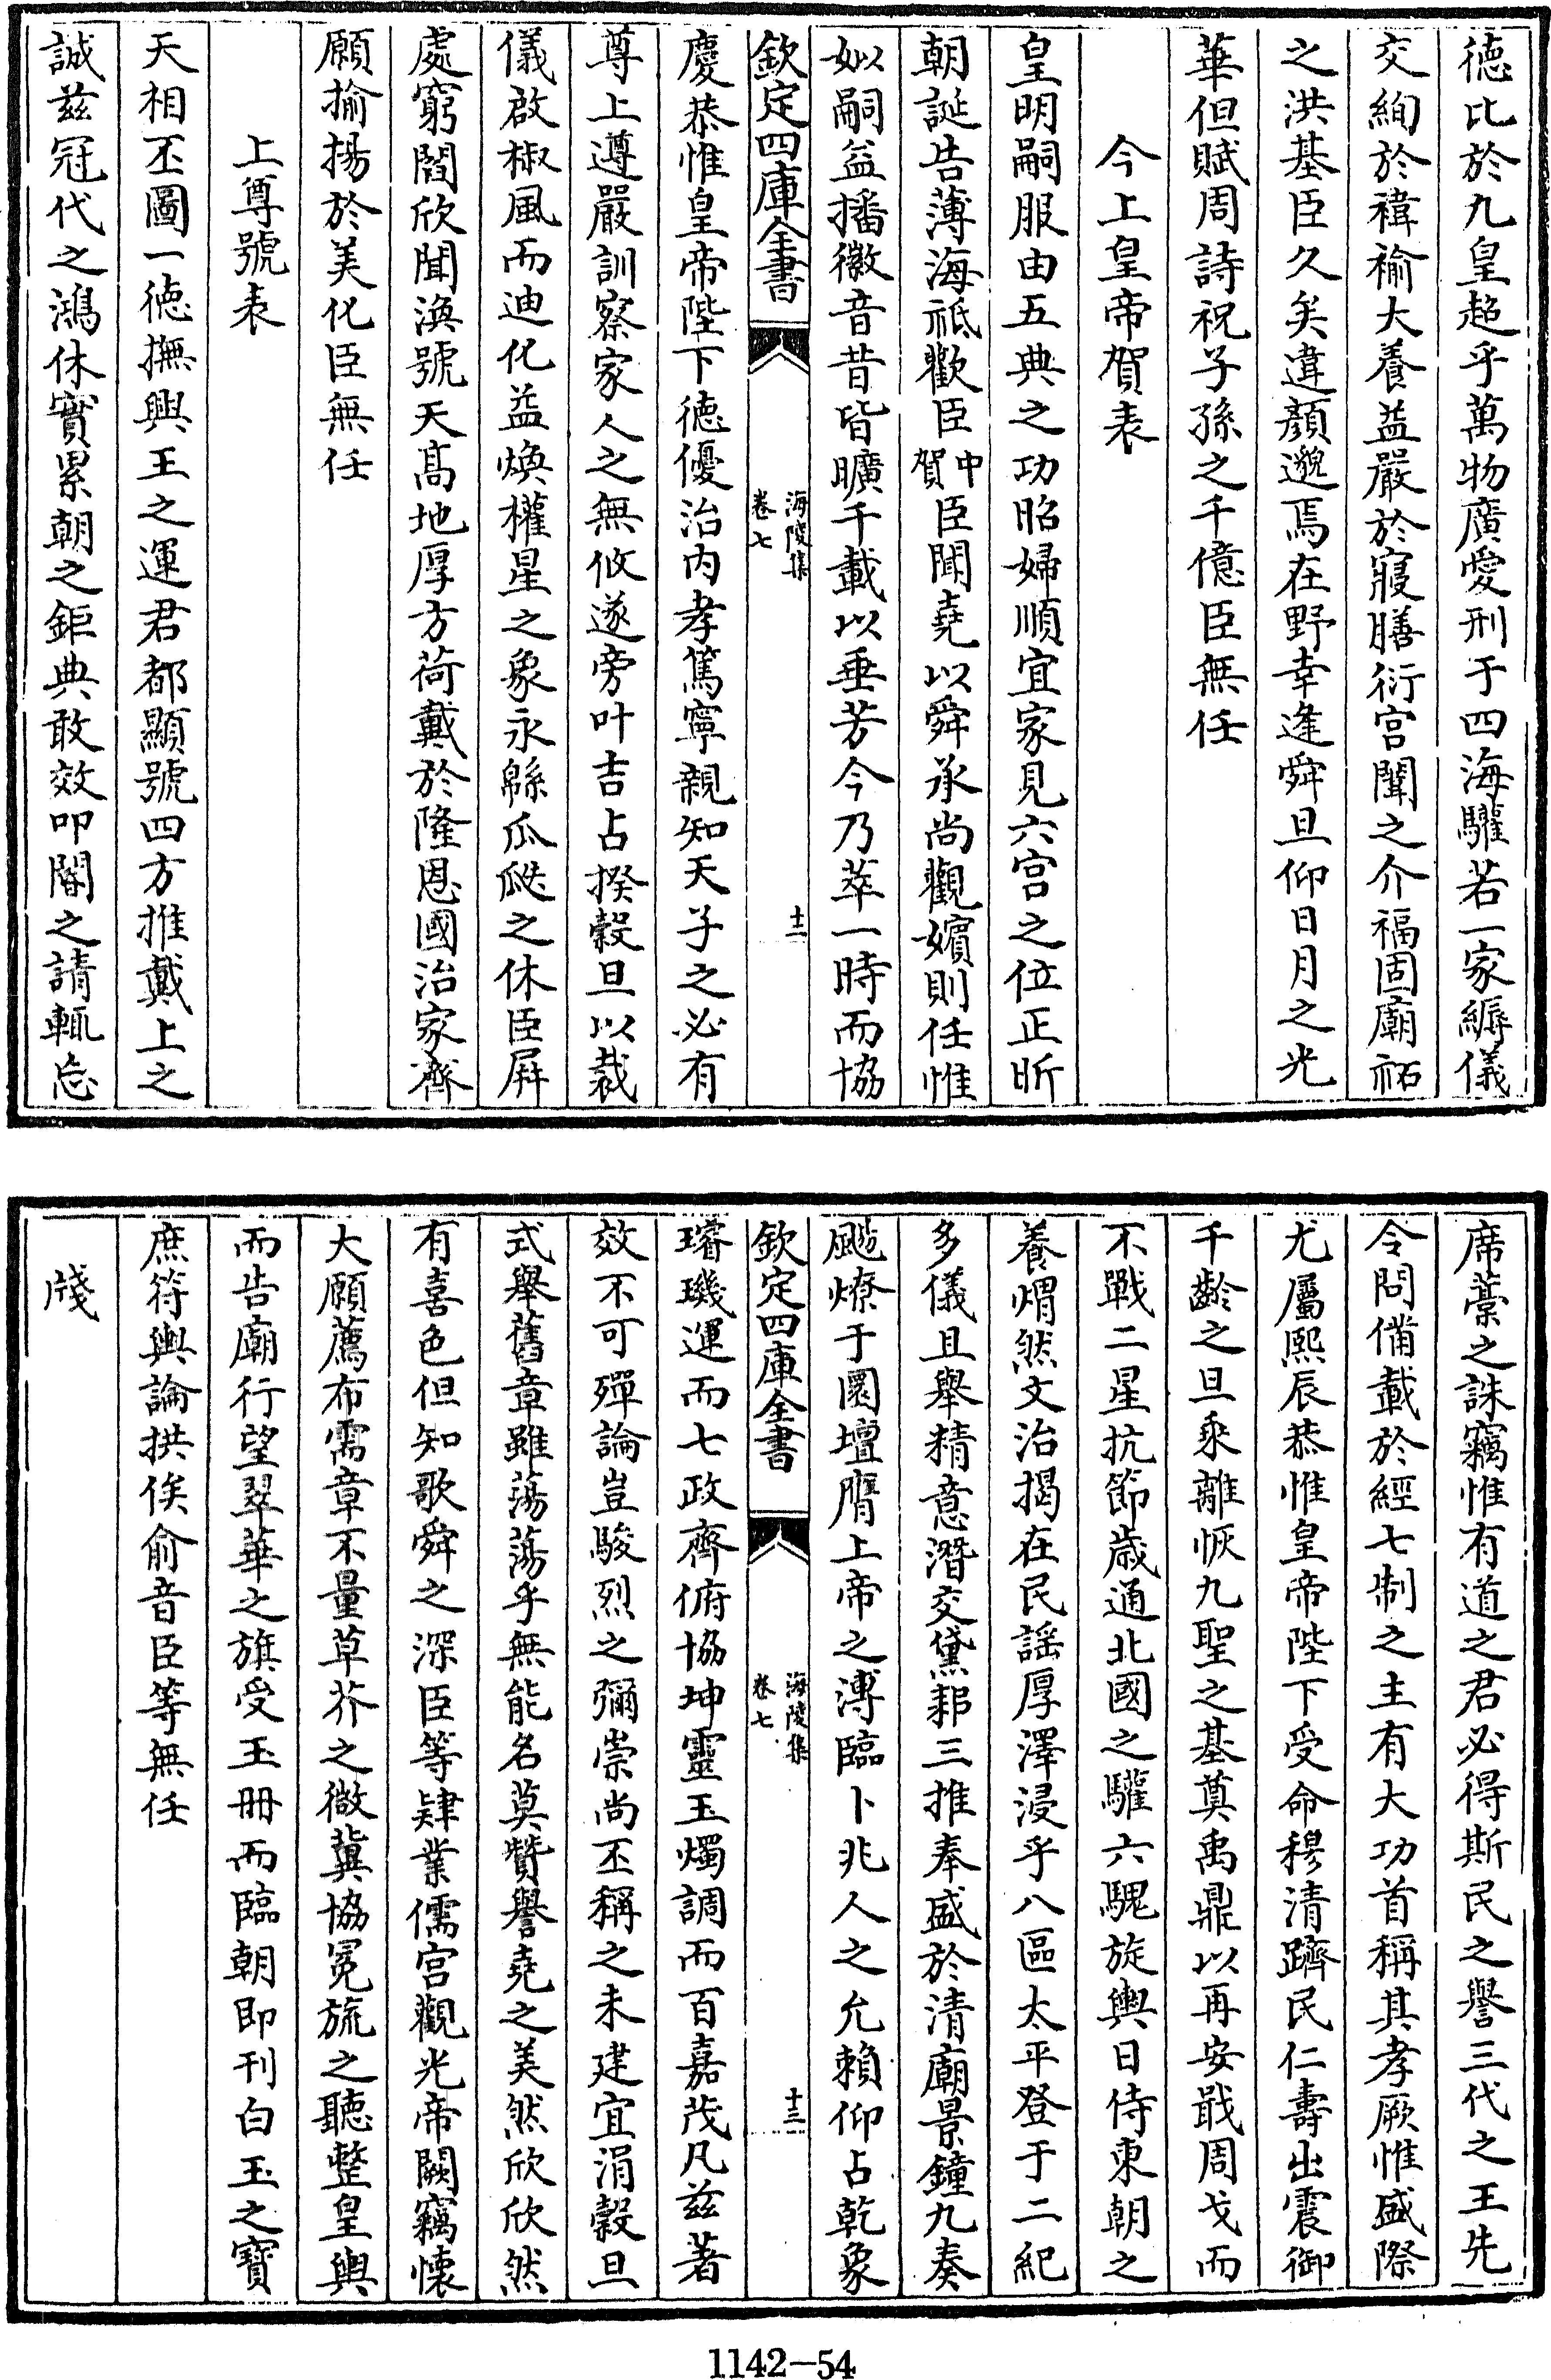 德比於九皇超乎萬物廣愛刑于四海驩若一家縟儀
交絢於褘褕大養益嚴於寢膳衍宮闈之介福固廟祏
之洪基臣久矣違顏邈焉在野幸逢舜旦仰日月之光
華但賦周詩祝子孫之千億臣無任
今上皇帝賀表
皇明嗣服由五典之功昭婦順宜家見六宮之位正昕
朝誕告薄海祗歡臣中賀臣聞堯以舜承尚觀嬪則任惟
姒嗣益播徽音昔皆曠千載以垂芳今乃萃一時而協
欽定四庫全書
海陵集
卷七
十二
慶恭惟皇帝陛下德優治內孝篤寧親知天子之必有
尊上遵嚴訓察家人之無攸遂旁叶吉占揆穀旦以裁
儀啟椒風而迪化益煥權星之象永緜瓜瓞之休臣屏
處窮閻欣聞渙號天高地厚方荷戴於隆恩國治家齊
願揄揚於美化臣無任
上尊號表
天相丕圖一德撫興王之運君都顯號四方推戴上之
誠茲冠代之鴻休實累朝之鉅典敢效叩閽之請輒忘
席藁之誅竊惟有道之君必得斯民之譽三代之王先
令問備載於經七制之主有大功首稱其孝厥惟盛際
尤屬熙辰恭惟皇帝陛下受命穆清躋民仁壽出震御
千齡之旦乘離恢九聖之基奠禹鼎以再安戢周戈而
不戰二星抗節歲通北國之驩六騩旋輿日侍東朝之
養煟然文治揭在民謠厚澤浸乎八區太平登于二紀
多儀且舉精意潛交黛耜三推奉盛於清廟景鐘九奏
颺燎于圜壇膺上帝之溥臨卜兆人之允賴仰占乾象
欽定四庫全書
海陵集
卷七
十三
璿璣運而七政齊俯協坤靈玉燭調而百嘉茂凡茲著
效不可殫論豈駿烈之彌崇尚丕稱之未建宜涓穀旦
式舉舊章雖蕩蕩乎無能名莫贊譽堯之美然欣欣然
有喜色但知歌舜之深臣等肄業儒宮觀光帝闕竊懷
大願薦布需章不量草芥之微冀協冕旒之聽整皇輿
而告廟行望翠華之旗受玉冊而臨朝即刊白玉之寶
庶符輿論拱俟俞音臣等無任
牋
1142-54